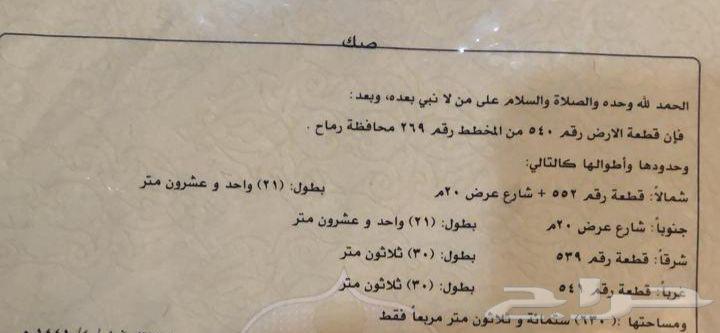 صك
الحمد لله وحده والصلاة والسلام على من لا نبي بعده، وبعد:
فإن قطعة الارض رقم ٥٤٠ من المخطط رقم ٢٦٩ محافظة رماح .
وحدودها وأطوالها كالتالي:
شمالاً: قطعة رقم ٥٥٢ + شارع عرض ٢٠م بطول: (٢١) واحد و عشرون متر
جنوباً: شارع عرض ٢٠م بطول: (٢١) واحد و عشرون متر
شرقاً: قطعة رقم ٥٣٩ بطول: (٣٠) ثلاثون متر
غرباً: قطعة رقم ٥٤١ بطول: (٣٠) ثلاثون متر
ومساحتها :( ٦٣٠) ستمائة و ثلاثون متر مربعاً فقط
حراج